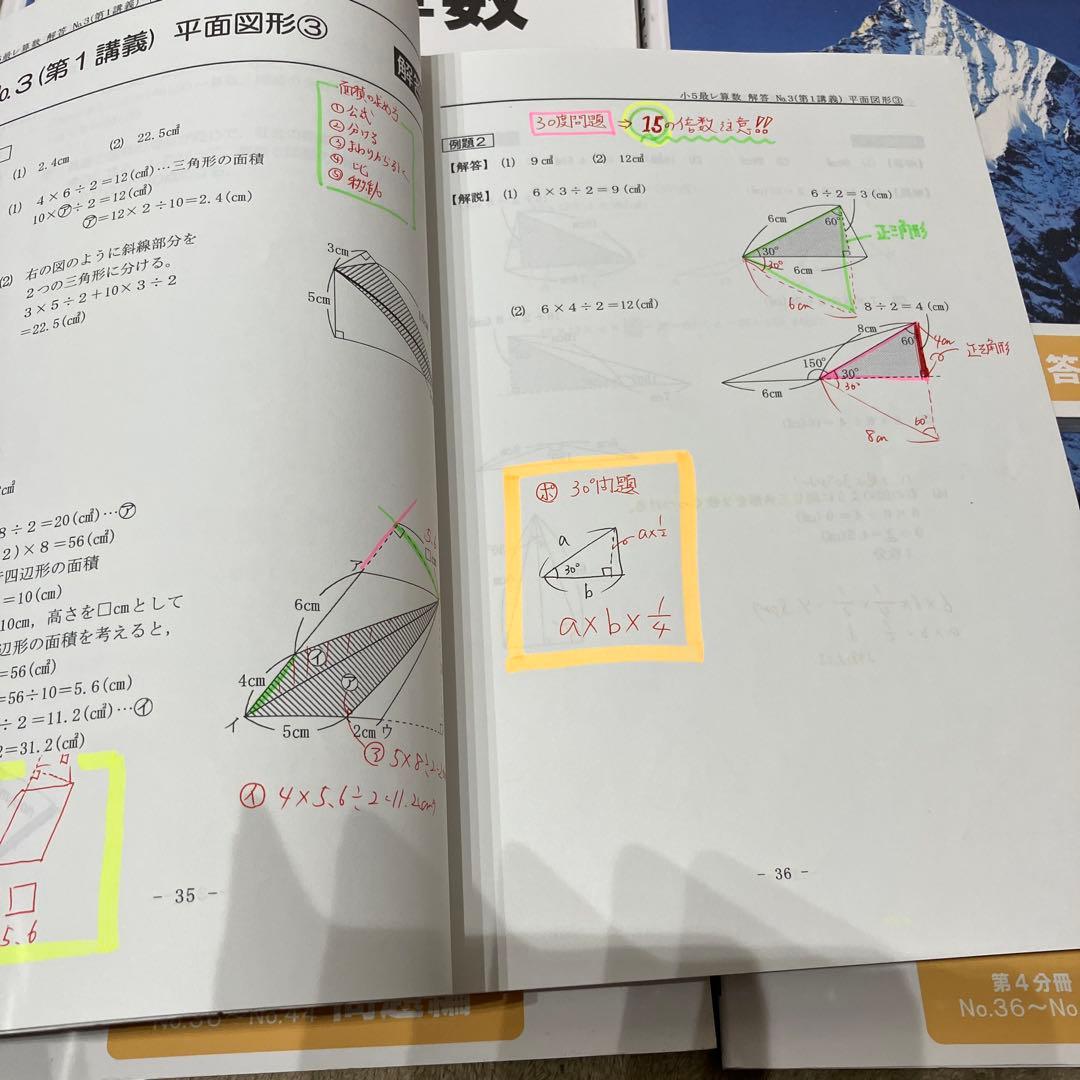 算数
小5最レ算数 解答 No.3(第1講義)
No.3(第1講義) 平面図形③
面積の求め方
①公式
②分ける
③まわりから引く
④比
(1) 2.4cm (2) 22.5c㎡
(1) 4×6÷2=12(c㎡)…三角形の面積
10×㋐÷2=12(c㎡)
㋐=12×2÷10=2.4(cm)
(2) 右の図のように斜線部分を
2つの三角形に分ける。
3×5÷2+10×3÷2
=22.5(c㎡)
3cm
5cm
8÷2=20(c㎡)…㋐
2)×8=56(c㎡)
四辺形の面積
=10(cm)
10cm, 高さを□cmとして
辺形の面積を考えると,
=56(c㎡)
=56÷10=5.6(cm)
÷2=11.2(c㎡)…㋑
2=31.2(c㎡)
ア
6cm
㋑
4cm
㋐
イ
5cm
2cm
ウ
㋐ 5×8÷2=2
㋑ 4×5.6÷2=11.2(cm²)
5.6
- 35 -
小5最レ算数 解答 No.3(第1講義) 平面図形③
30度問題 → 15の倍数注意!!
例題2
【解答】 (1) 9c㎡ (2) 12c㎡
【解説】 (1) 6×3÷2=9(c㎡)
6÷2=3(cm)
6cm
60°
30°
30°
6cm
6cm
正三角形
(2) 6×4÷2=12(c㎡)
8÷2=4(cm)
8cm
60°
4cm
正三角形
150°
30°
30°
6cm
8cm
60°
㋭ 30°問題
a
a×1/2
30°
b
a×b×1/4
- 36 -
答
第4分冊
No.36〜No.
No.44 問題編